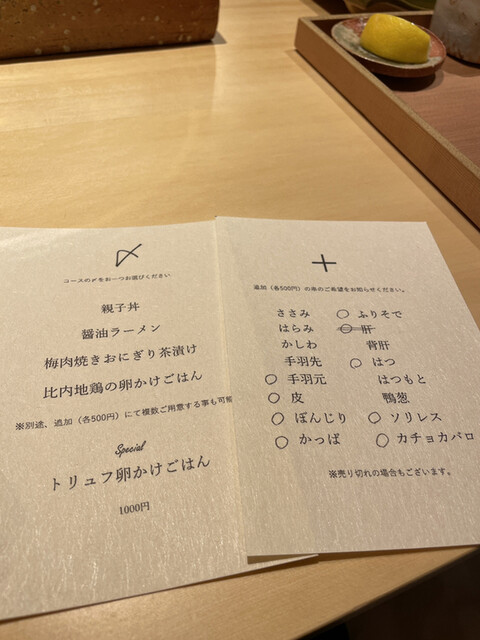 〆
コースの〆をお一つお選びください
親子丼
醤油ラーメン
梅肉焼きおにぎり茶漬け
比内地鶏の卵かけごはん
※別途、追加（各500円）にて複数ご用意する事も可能
Special
トリュフ卵かけごはん
1000円
＋
追加（各500円）の串のご希望をお知らせください。
ささみ ○ ふりそで
はらみ ○ 肝
かしわ 背肝
手羽先 ○ はつ
○ 手羽元 はつもと
○ 皮 鴨葱
○ ぼんじり ○ ソリレス
○ かっぱ ○ カチョカバロ
※売り切れの場合もございます。